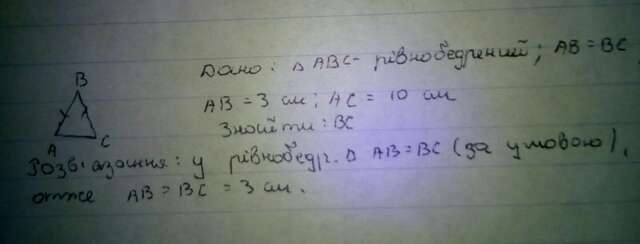 Дано: Δ ABC - рівнобедрений; AB = BC
AB = 3 см; AC = 10 см
Знайти: BC
B
A C
Розв'язання: у рівнобедр. Δ AB = BC (за умовою),
отже AB = BC = 3 см.